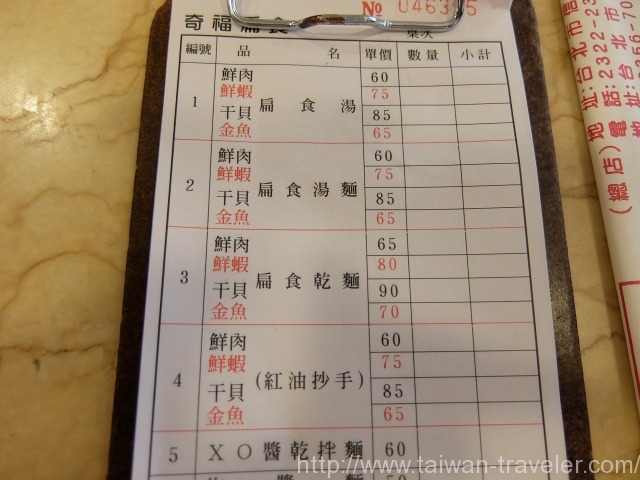 奇福扁食
№ 046315
桌次
編號 品名 單價 數量 小計
1 扁食湯
鮮肉 60
鮮蝦 75
干貝 85
金魚 65
2 扁食湯麵
鮮肉 60
鮮蝦 75
干貝 85
金魚 65
3 扁食乾麵
鮮肉 65
鮮蝦 80
干貝 90
金魚 70
4 (紅油抄手)
鮮肉 60
鮮蝦 75
干貝 85
金魚 65
5 XO醬乾拌麵 60
醬 麵 50
(總店)電話:2322-23
地址:台北市信
http://www.taiwan-traveler.com